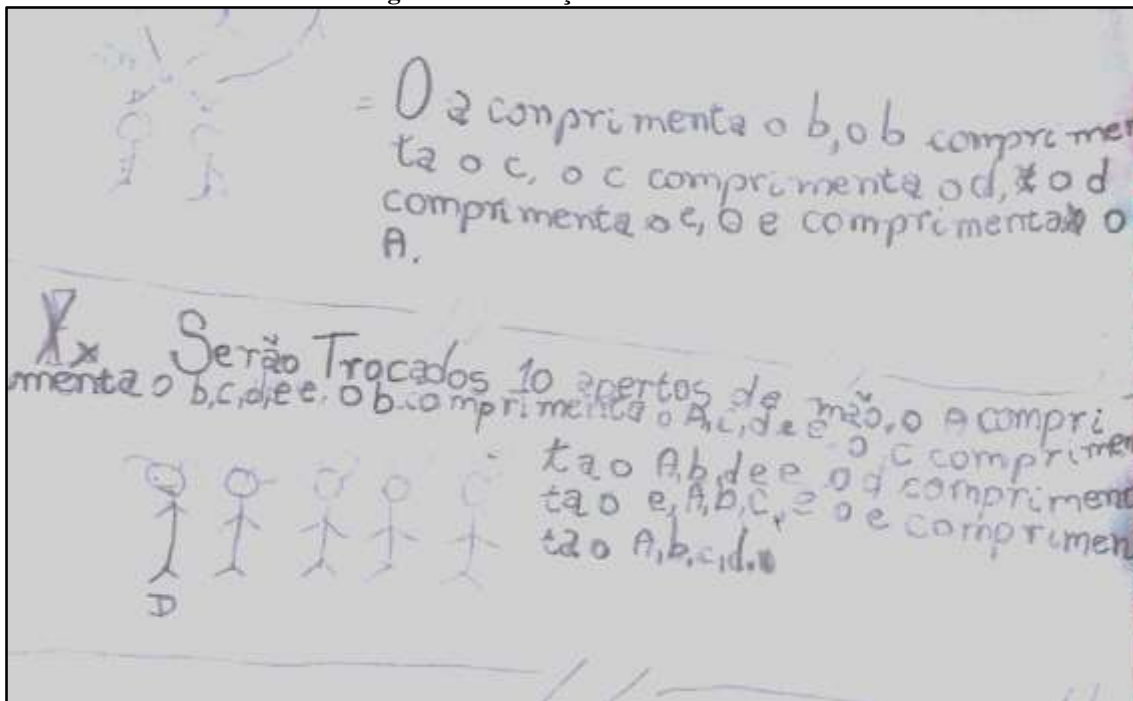 = O a conprimenta o b, o b comprimen
ta o c, o c comprimenta o d, o d
comprimenta o e, o e comprimenta o
A.
Serão Trocados 10 apertos de mão, o A compri
menta o b, c, d, e e. O b comprimenta o A, c, d e e. O c comprimen
ta o A, b, d e e o d compriment
ta o e, A, b, c, e o e comprimen
ta o A, b, c, d.
D